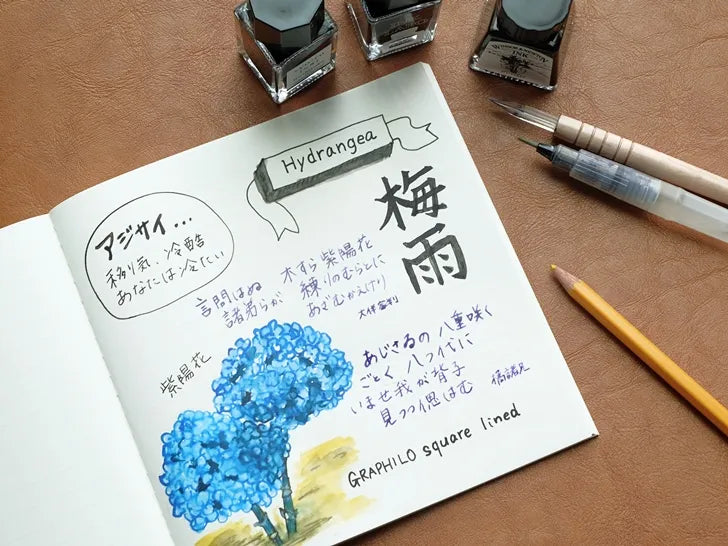 WINSOR & NEWTON
INK
Hydrangea
梅雨
アジサイ...
移り気、冷酷
あなたは冷たい
言問はぬ 木すら紫陽花
諸弟らが 練りのむらとに
あざむかえけり
大伴家持
紫陽花
あじさゐの 八重咲く
ごとく 八つ代に
いませ我が背子
見つつ偲はむ
橘諸兄
GRAPHILO square lined